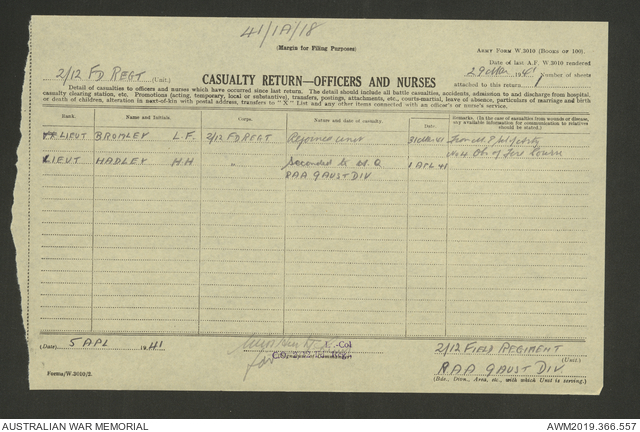 41/1A/18
(Margin for Filing Purposes)
ARMY FORM W.3010 (BOOKS OF 100).
2/12 FD REGT (Unit.)
Date of last A.F. W.3010 rendered
29 Mar 1941
CASUALTY RETURN—OFFICERS AND NURSES
Number of sheets
attached to this return 1
Detail of casualties to officers and nurses which have occurred since last return. The detail should include all battle casualties, accidents, admission to and discharge from hospital,
casualty clearing station, etc. Promotions (acting, temporary, local or substantive), transfers, postings, attachments, etc., courts-martial, leave of absence, particulars of marriage and birth
or death of children, alteration in next-of-kin with postal address, transfers to "X" List and any other items connected with an officer's or nurse's service.
Rank. Name and Initials. Corps. Nature and date of casualty. Date. Remarks. (In the case of casualties from wounds or disease, any available information for communication to relatives should be stated.)
LIEUT BROMLEY L F. 2/12 FD REGT Rejoined unit 31 Mar 41 from
No 4
LIEUT HADLEY H H " Seconded to H.Q 1 APL 41
RAA 9 AUST DIV
(Date) 5 APL 1941
Lt.-Col
for
2/12 FIELD REGIMENT
(Unit.)
RAA 9 AUST DIV.
(Bde., Divn., Area, etc., with which Unit is serving.)
Forms/W.3010/2.
AUSTRALIAN WAR MEMORIAL
AWM2019.366.557